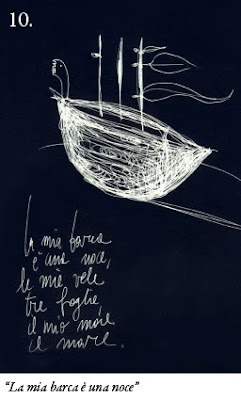 10.
La mia barca
è una noce,
le mie vele
tre foglie
il mio mare
il mare.
“La mia barca è una noce”